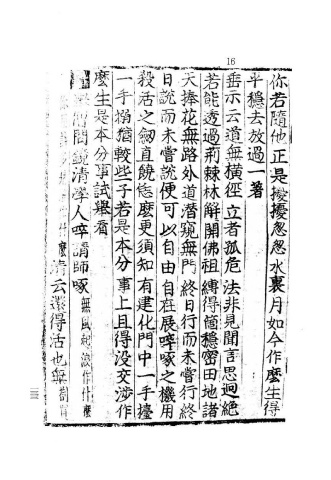 16
你若隨他正是擾擾怱怱水裏月如今作麼生得
平穩去放過一著
垂示云道無橫徑立者孤危法非見聞言思迥絕
若能透過荊棘林解開佛祖縛得箇穩密田地諸
天捧花無路外道潛窺無門終日行而未嘗行終
日說而未嘗說便可以自由自在展啐啄之機用
殺活之劒直饒恁麼更須知有建化門中一手擡
一手搦猶較些子若是本分事上且得沒交涉作
麼生是本分事試舉看
舉僧問鏡清學人啐請師啄無風起浪作什麼
什麼清云還得活也無